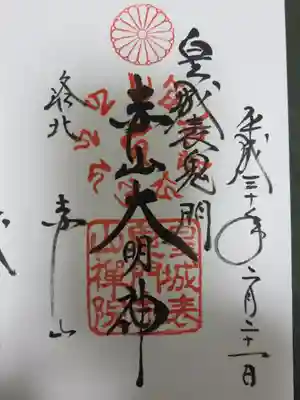 平成三十年二月二十一日
皇城表鬼門
赤山大明神
洛北
赤山
皇城表
鬼門
山禅院